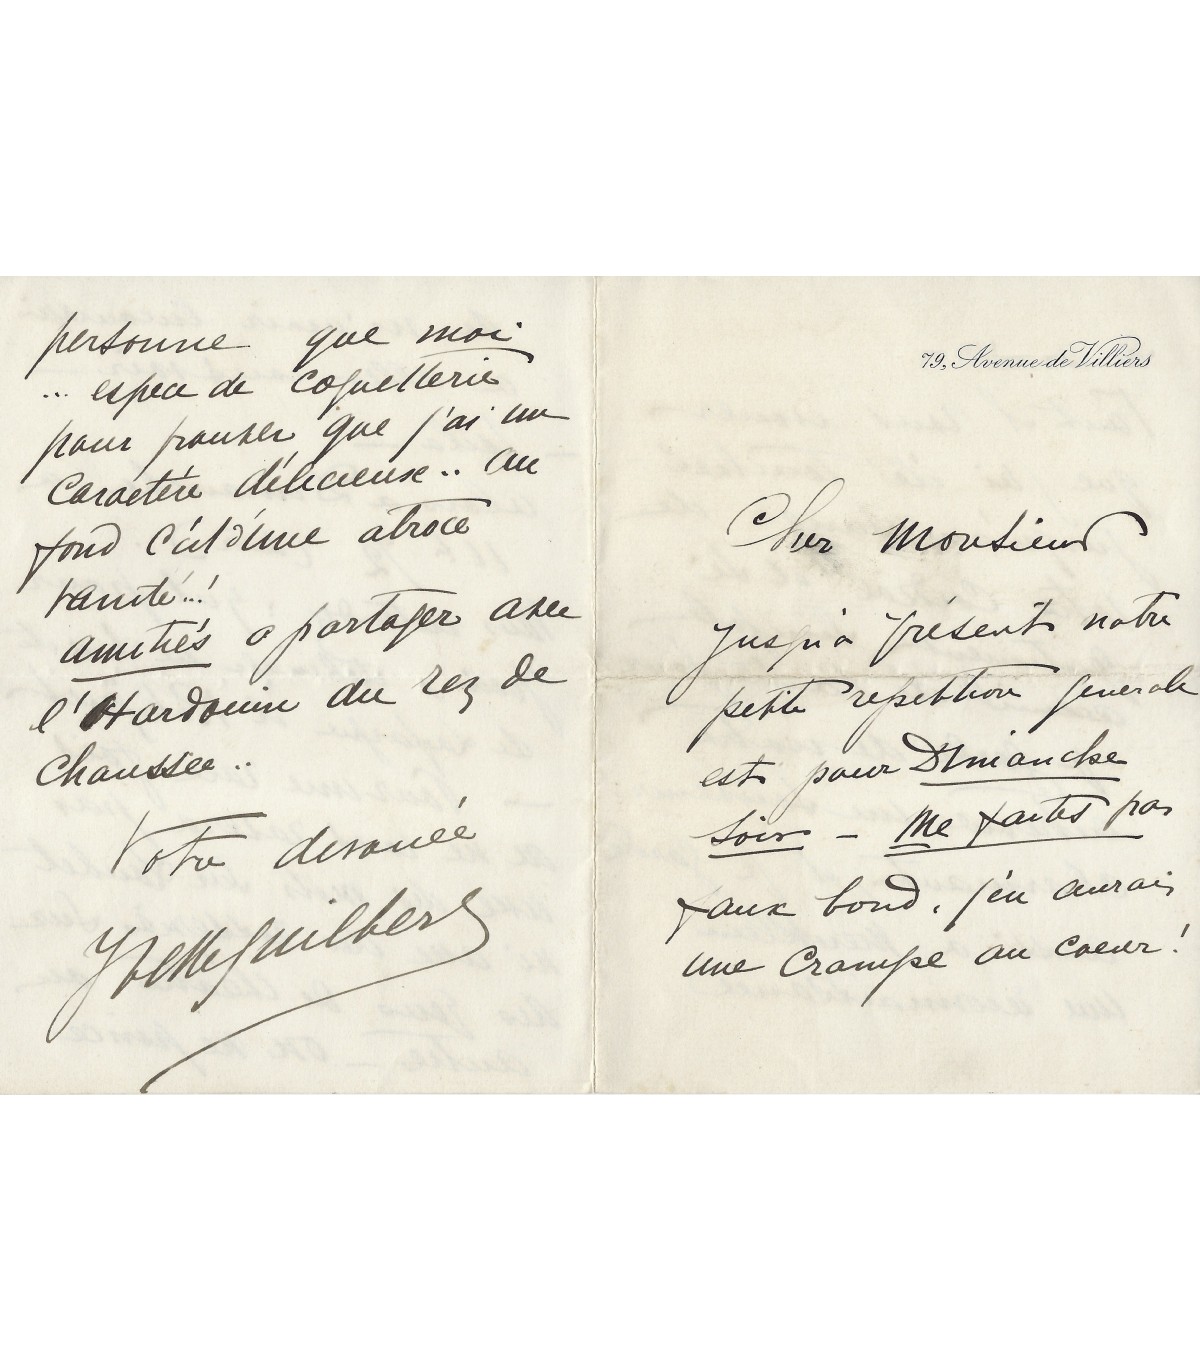 79, Avenue de Villiers
Cher Monsieur
Jusqu'à présent notre
petite repetition generale
est pour Dimanche
Soir - Me faites pas
faux bond, j'en aurais
une Crampe au coeur!
personne que moi
... espece de Coquetterie
pour prouver que j'ai un
Caractère délicieux.. au
fond c'est d'une atroce
vanité..!
amitiés a partager avec
l'Hardouin du rez de
Chaussée..
Votre devouée
Yvette Guilbert